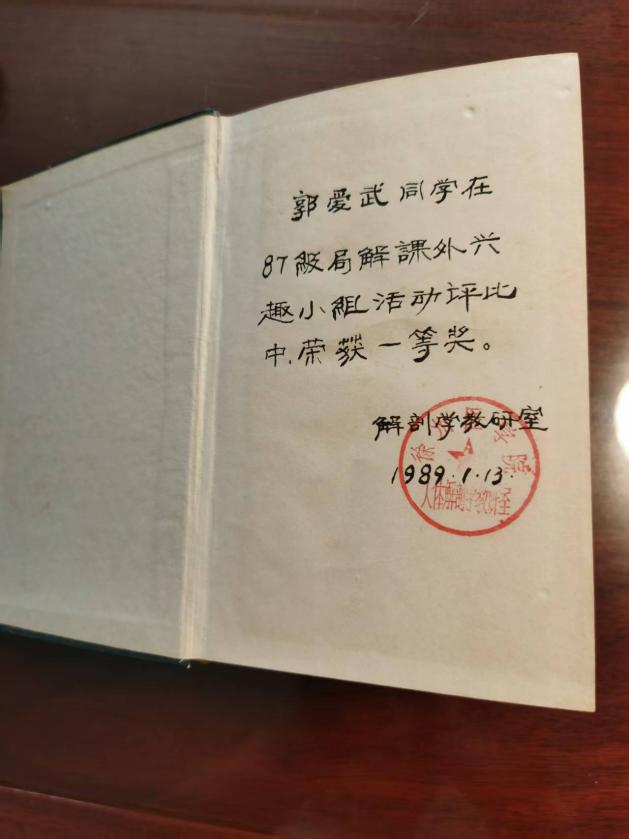 郭爱武同学在
87级局解課外兴
趣小组活动坪比
中.荣获一等奖。
解剖学教研室
1989.1.13.
徐州医学院
人体解剖学教研室